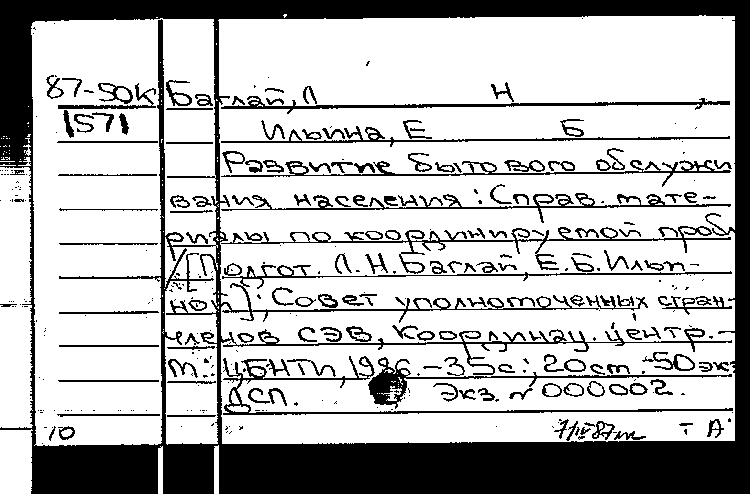 87-50К Баглай, Л Н
1571 Ильина, Е Б
Развитие бытового обслужи
вания населения : Справ. мате-
риалы по координируемой пробл
/ [Подгот. Л.Н. Баглай, Е.Б. Ильи-
ной] ; Совет уполномоченных стран-
членов СЭВ, Координац. центр. -
М. : ЦБНТИ, 1986. - 35с. ; 20см. - 50 экз
ДСП. Экз. № 000002.
10 т А